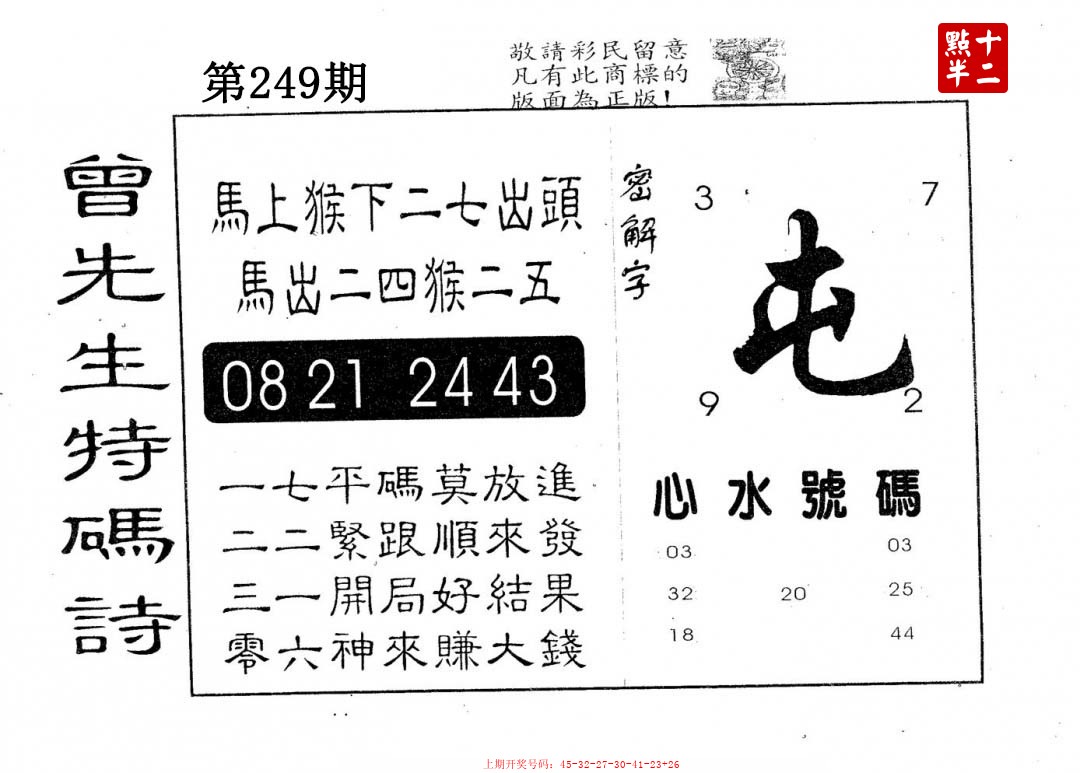 第249期
敬請彩民留意
凡有此商標的
版面為正版!
十二
點半
曾先生特碼詩
馬上猴下二七出頭
馬出二四猴二五
08 21 24 43
一七平碼莫放進
二二緊跟順來發
三一開局好結果
零六神來賺大錢
密解字
3 7
屯
9 2
心水號碼
03 03
32 20 25
18 44
上期开奖号码: 45-32-27-30-41-23+26